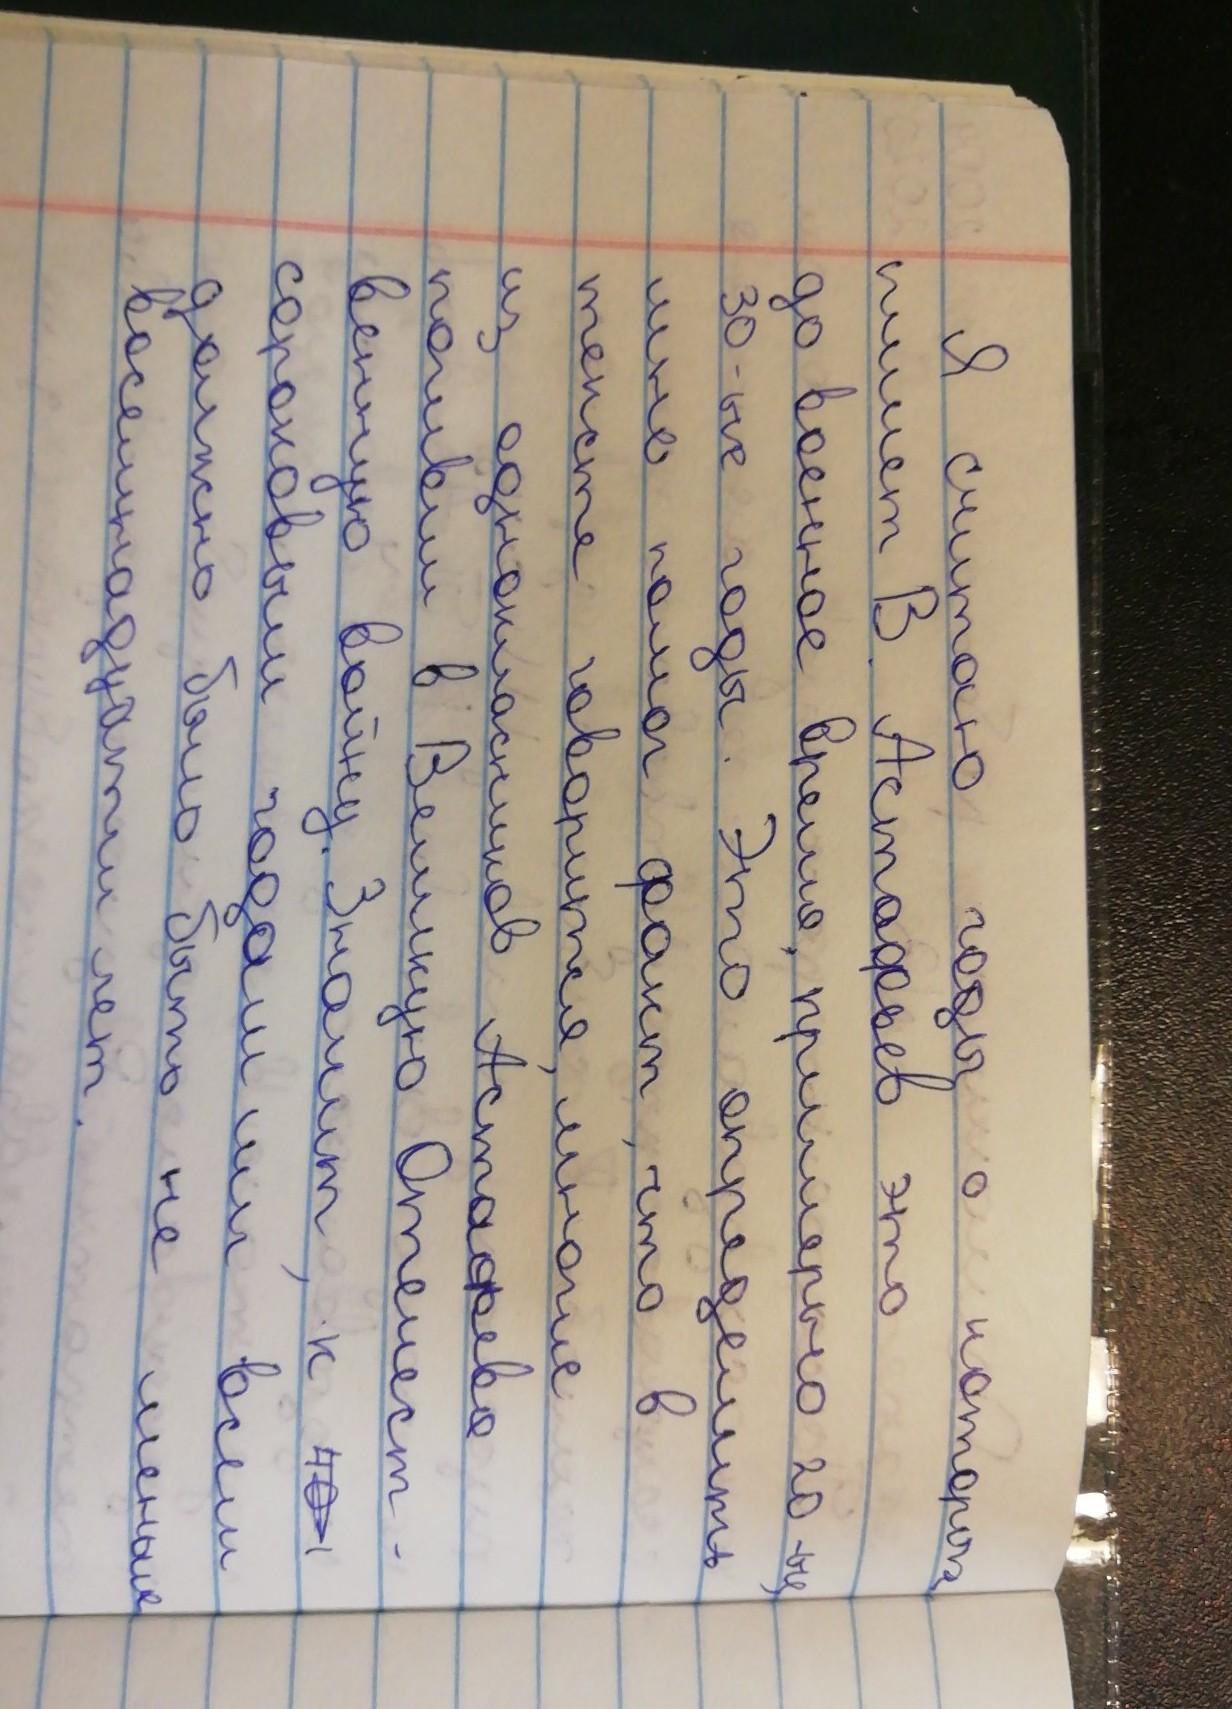 Я считаю годы о которых
пишет В. Астафьев это
до военное время, примерно 20-ые,
30-ые годы. Это определить
мне помог факт, что в
тексте говорится, многие
из одноклассников Астафьева
погибли в Великую Отечест-
венную войну. Значит, к
сороковым годам им всем
должно было быть не меньше
восемнадцати лет.